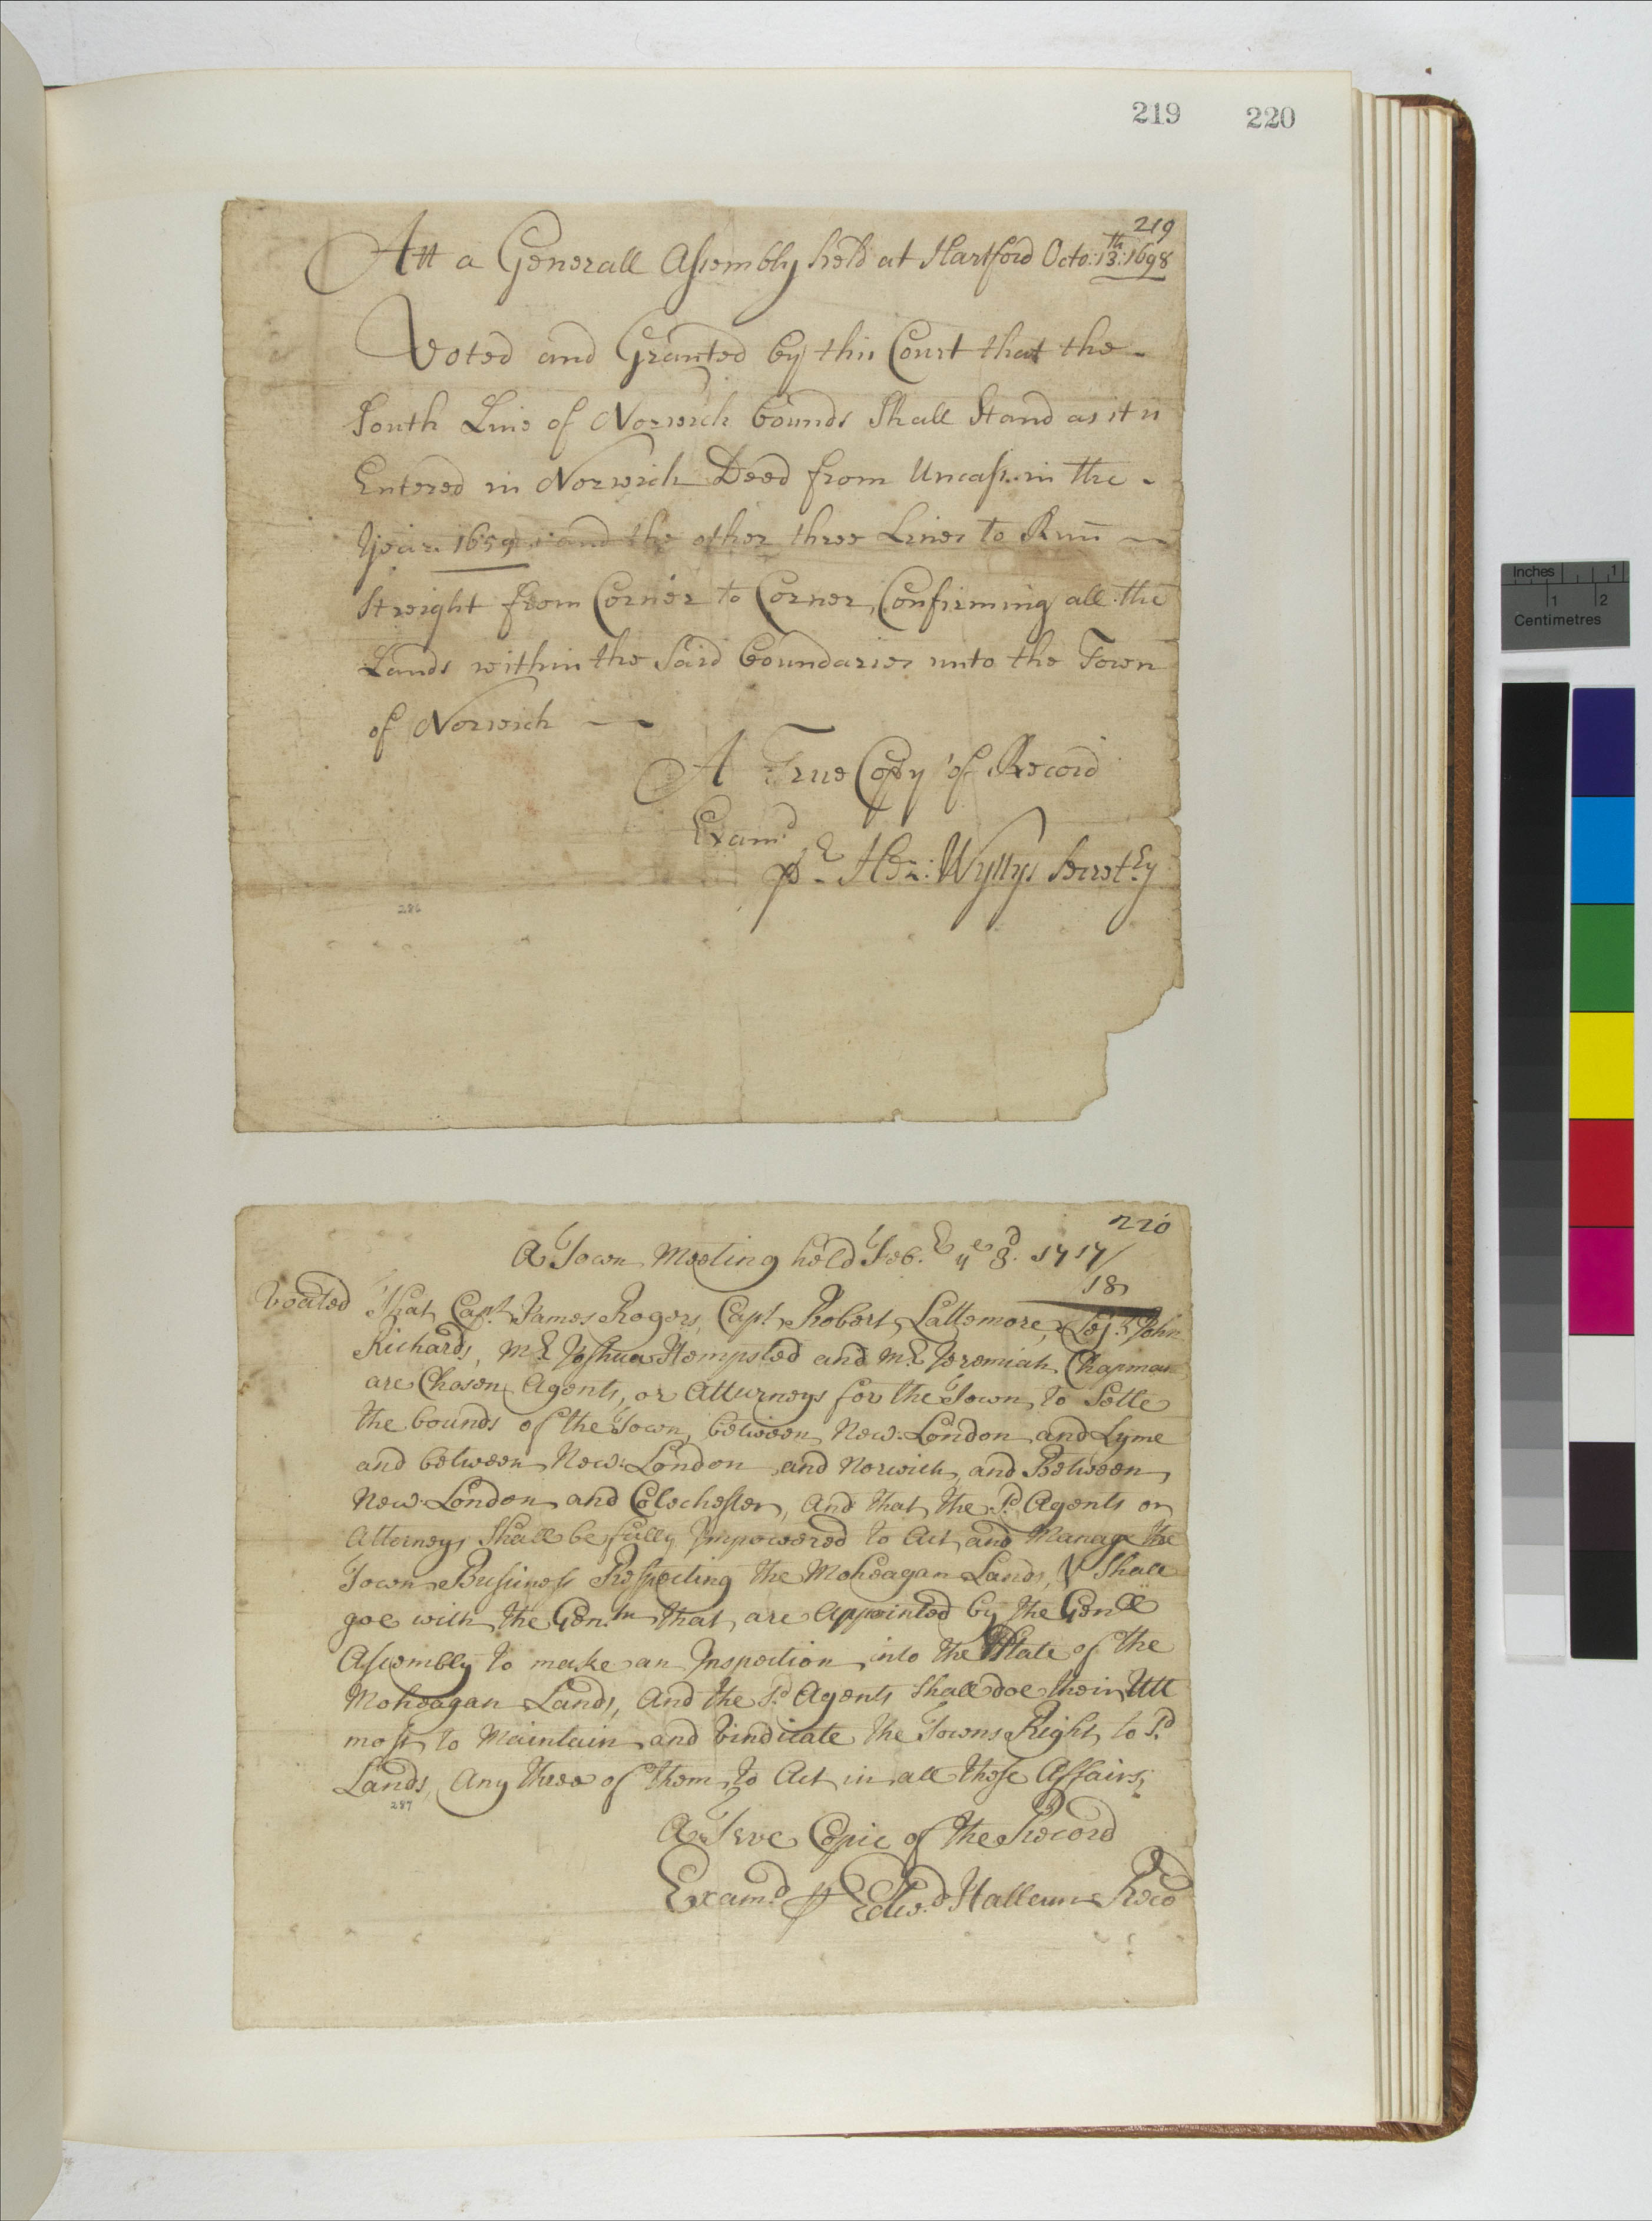 219 220
219
Att a Generall Assembly held at Hartford Octo: 13th: 1698
Voted and Granted by this Court that the
South Line of Norwich bounds Shall Stand as it is
Entered in Norwich Deed from Uncass in the
Year 1659 and the other three Lines to Run
Streight from Corner to Corner, Confirming all the
Lands within the Said boundaries unto the Town
of Norwich
A True Copy of Record
Examd
pr Hez: Wyllys Secretry
286
220
A Town Meeting held Febr ye 3d. 1717/
18
Voated That Capt. James Rogers, Capt Robert Lattemore, John
Richards, Mr Joshua Hempsted and Mr Jeremiah Chapman
are Chosen Agents, or Atturneys for the Town, to Setle
the bounds of the Town, between New London and Lyme
and between New London and Norwich, and Between
New London and Colechester, And that the Sd Agents or
Attorneys Shall be fully Impowered to Act and Manage the
Town Business Respecting the Moheagan Lands, & Shall
goe with the Gentm that are Appointed by the Genll
Assembly to make an Inspection into the State of the
Moheagan Lands, And the Sd Agents Shall doe their Utt
most to Maintain and Vindicate the Towns Right to Sd
Lands, Any three of them to Act in all those Affairs;
287
A Trve Copie of the Record
Examd p Edwd Hallam Recd
Inches 1
1 2
Centimetres